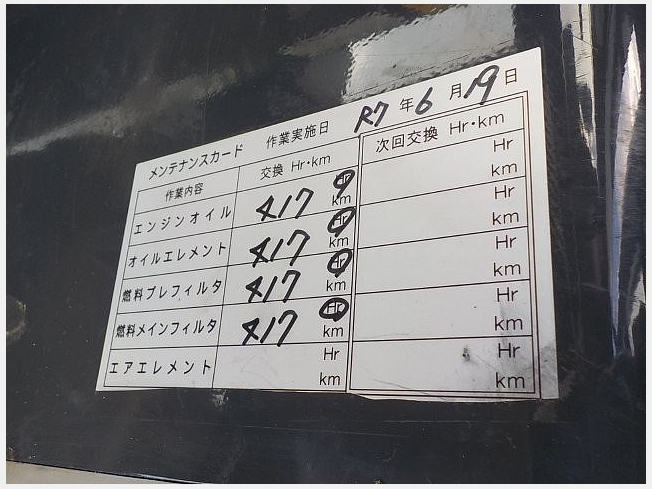 メンテナンスカード 作業実施日 R7年6月19日
作業内容 交換 Hr・km 次回交換 Hr・km
エンジンオイル 417 Hr km Hr km
オイルエレメント 417 Hr km Hr km
燃料プレフィルタ 417 Hr km Hr km
燃料メインフィルタ 417 Hr km Hr km
エアエレメント Hr km Hr km